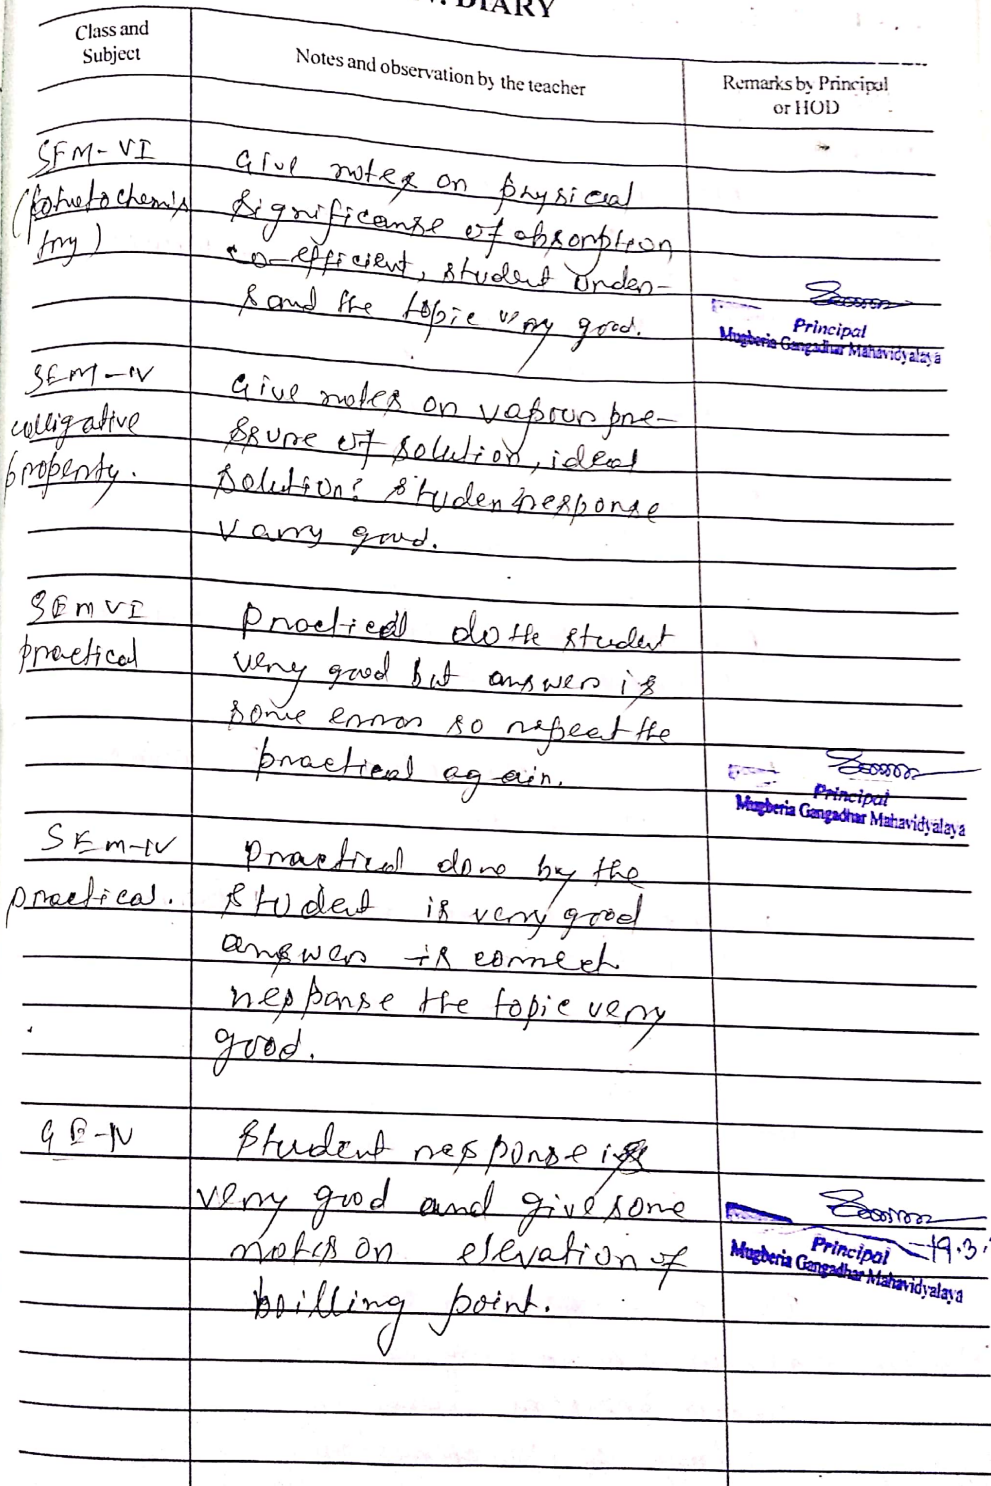 DIARY
Class and
Subject
Notes and observation by the teacher
Remarks by Principal
or HOD
SEM-VI
(Fotuetochemis
try)
Give notes on physical
significanse of absorption
co-efficient, student under-
sand the topic very good.
Principal
Mugberia Gangadhar Mahavidyalaya
SEM-IV
colligative
property.
Give notes on vapour pre-
ssure of solution, ideal
solution: studen response
varry good.
SEM VI
practical
Practicel do the student
very good but answer is
some error so repeat the
practical again.
Principal
Mugberia Gangadhar Mahavidyalaya
SEM-IV
practical.
Practical done by the
student is very good
answer is correct
response the topic very
good.
GE-IV
Student response is
very good and give some
notes on elevation of
boilling point.
19.3.
Principal
Mugberia Gangadhar Mahavidyalaya